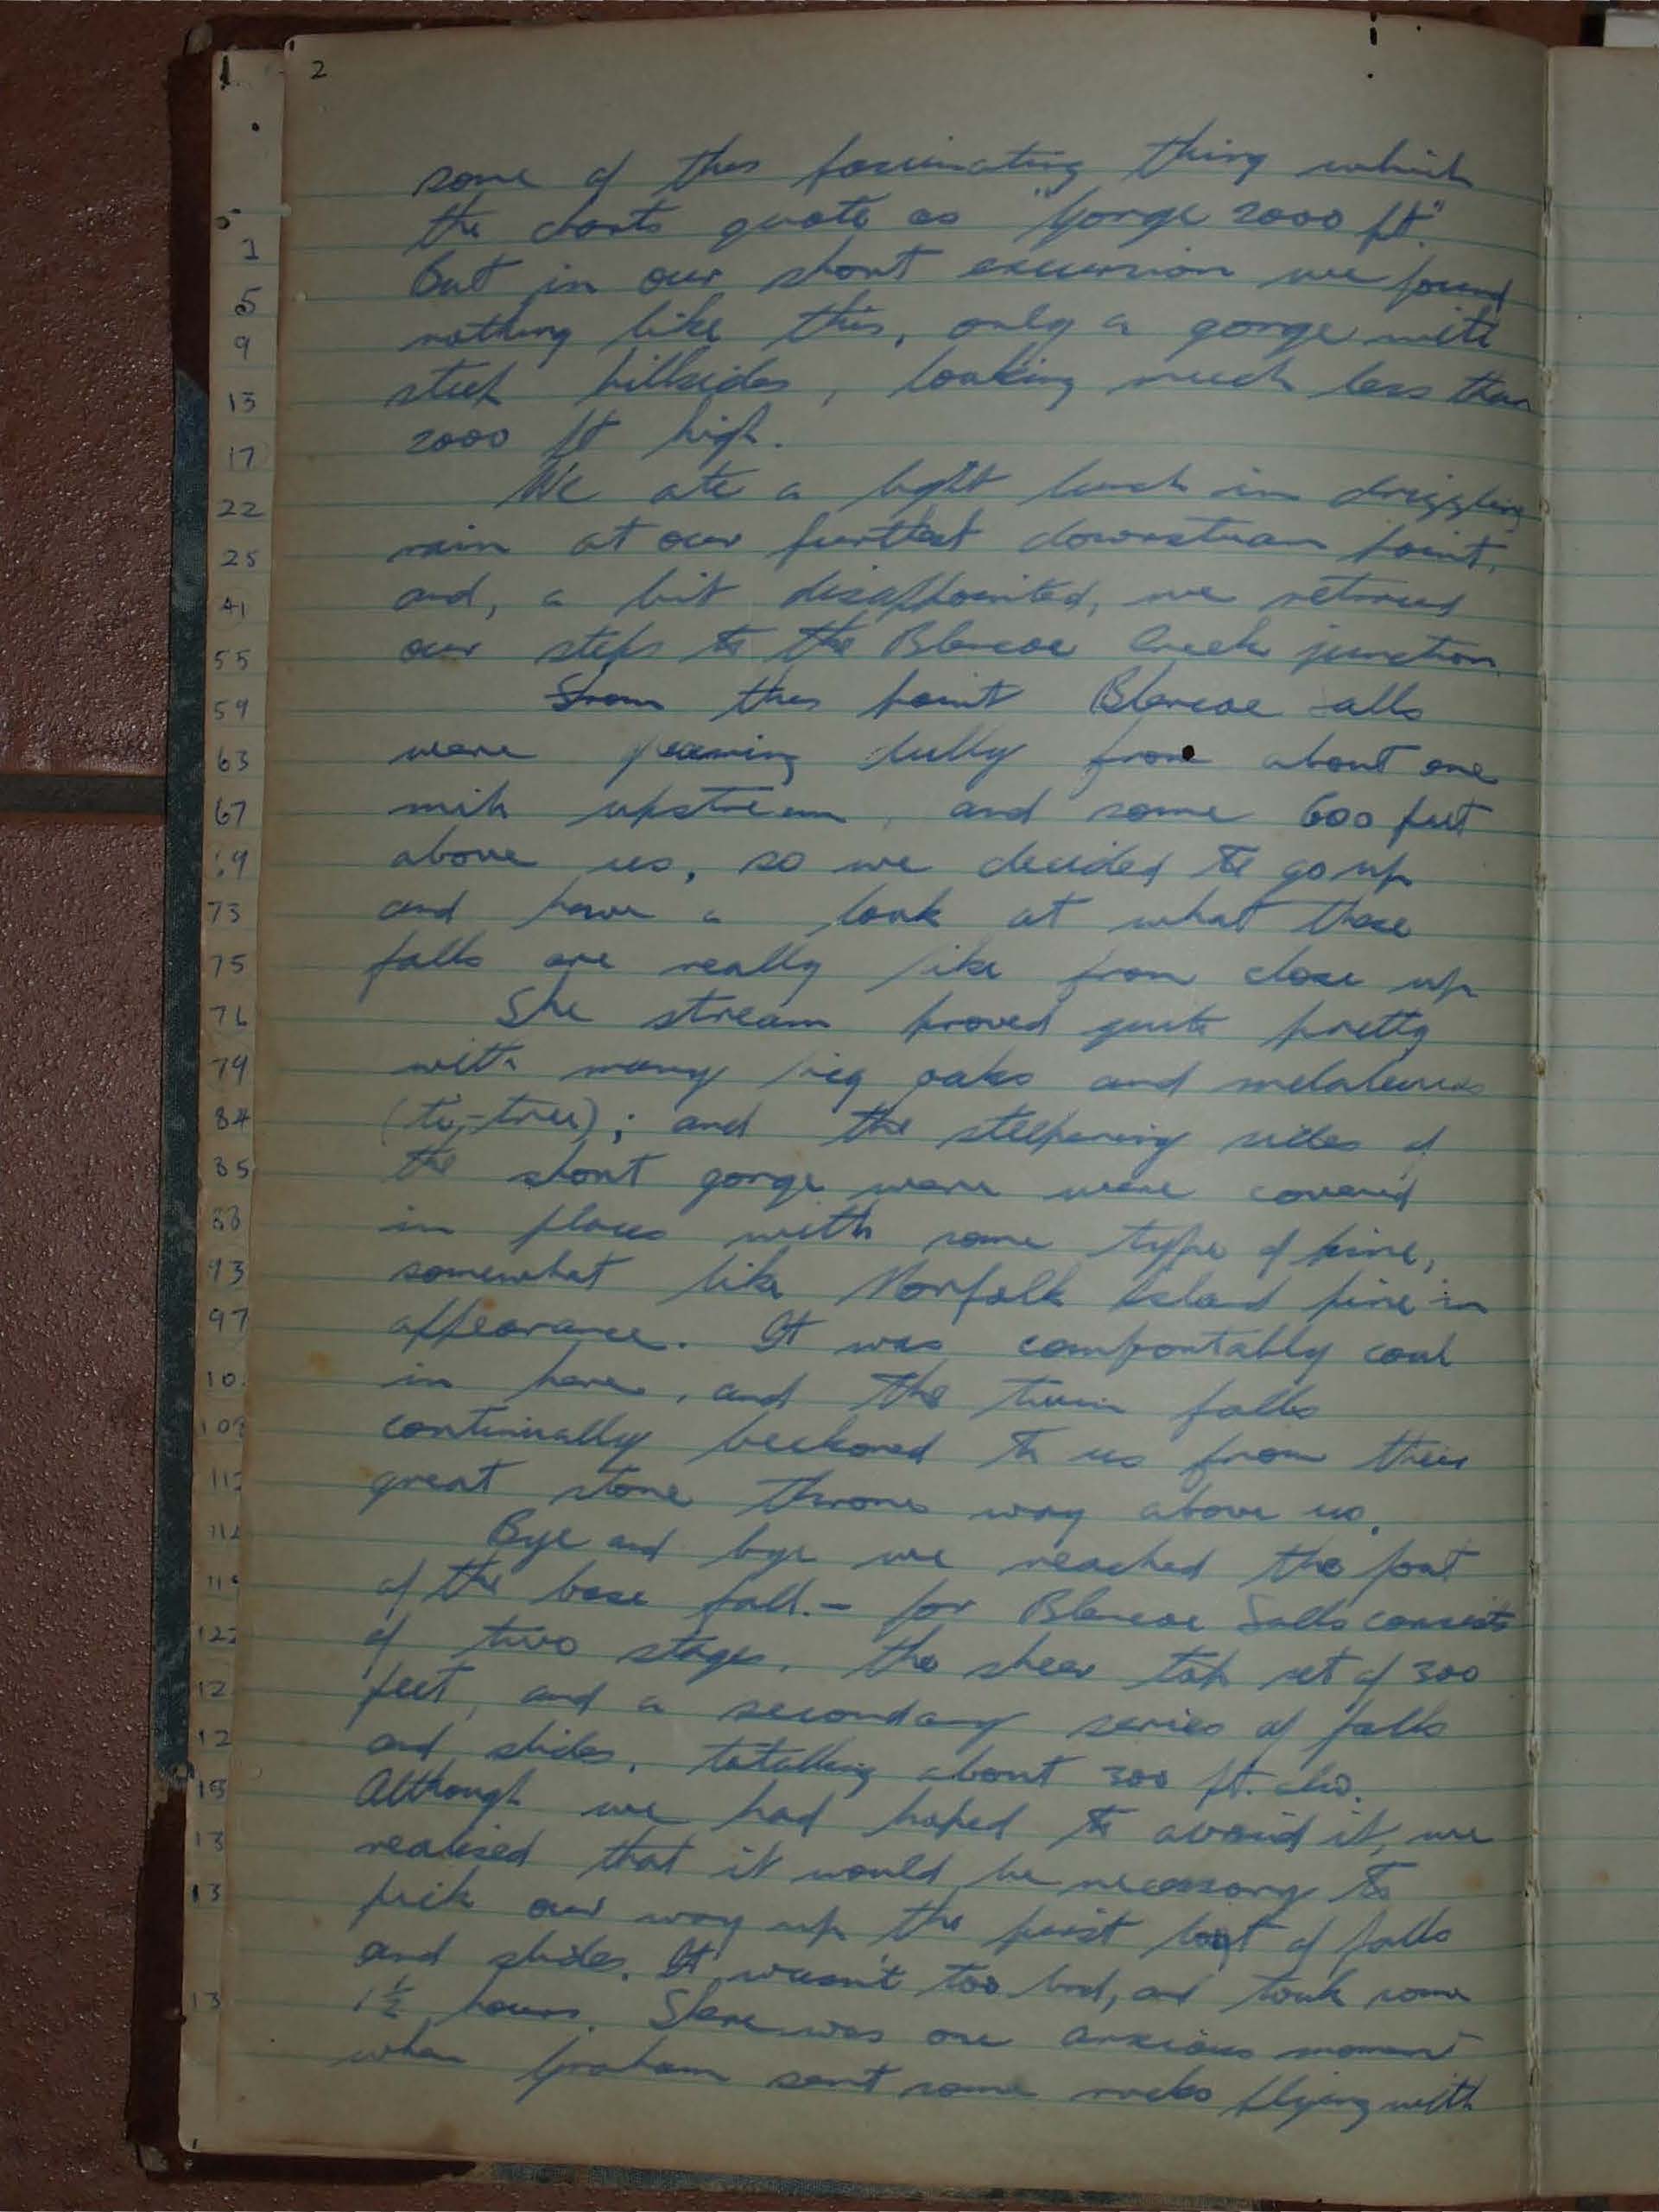 2
some of this fascinating thing which
the charts quote as "Gorge 2000 ft".
But in our short excursion we found
nothing like this, only a gorge with
steep hillsides, looking much less than
2000 ft high.
We ate a light lunch in drizzling
rain at our furthest downstream point,
and, a bit disappointed, we retraced
our steps to the Blencoe Creek junction.
From this point Blencoe Falls
were dully from about one
mile upstream, and some 600 feet
above us, so we decided to go up
and have a look at what these
falls are really like from close up
The stream proved quite pretty
with many big oaks and melaleucas
(ti-tree); and the steepening sides of
the short gorge were were covered
in places with some type of pine,
somewhat like Norfolk Island pine in
appearance. It was comfortably cool
in here, and the twin falls
continually beckoned to us from their
great stone throne way above us.
Bye and bye we reached the foot
of the base fall. - for Blencoe Falls consists
of two stages, the sheer top set of 300
feet, and a secondary series of falls
and slides, totalling about 300 ft. also.
Although we had hoped to avoid it, we
realised that it would be necessary to
pick our way up the first lot of falls
and slides. It wasn't too bad, and took some
1½ hours. There was one anxious moment
when Graham sent some rocks flying with
1
5
9
13
17
22
25
41
55
59
63
67
69
73
75
76
79
84
85
88
93
97